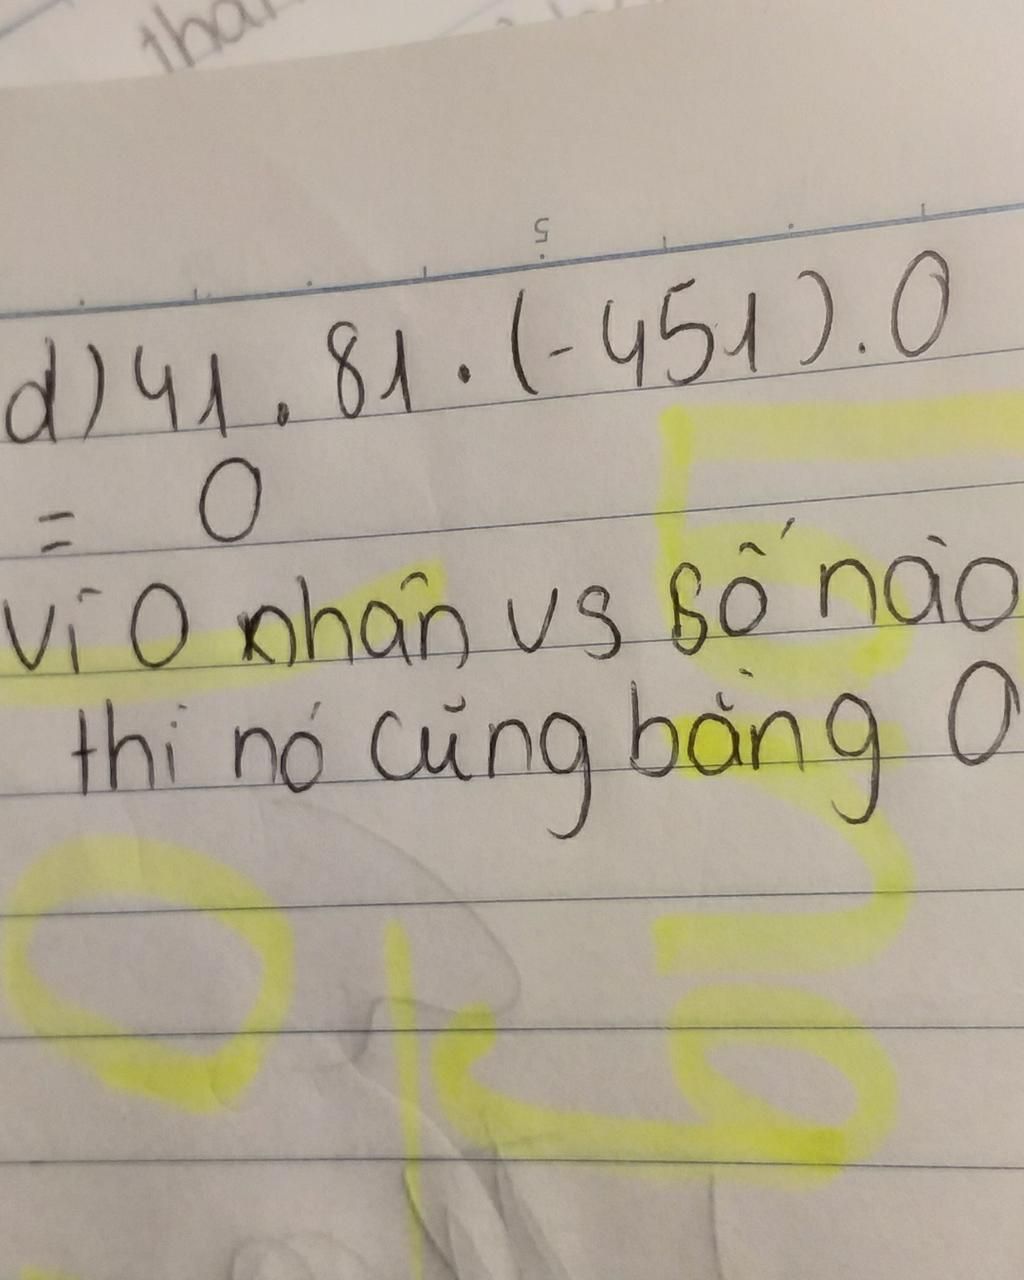 5
d) 41 . 81 . (-451) . 0
= 0
Vì 0 nhân vs số nào
thì nó cũng bằng 0